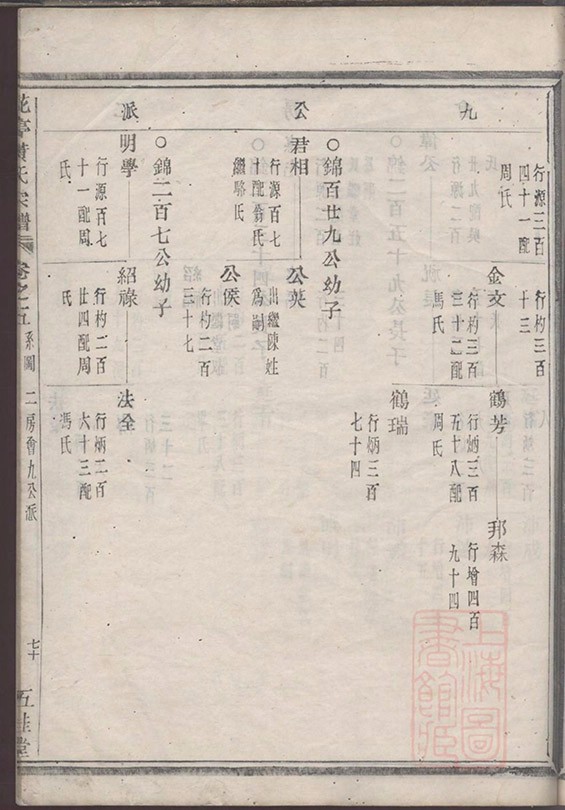 九
公
派
行源三百
四十一配
周氏
行杓三百
十三
金文
行杓三百
三十二配
馮氏
鶴芳
行炳三百
五十八配
周氏
邦森
行增四百
九十四
鶴瑞
行炳三百
七十四
○錦百廿九公幼子
君相
行源百七
十配翁氏
繼駱氏
公英
出繼陳姓
為嗣
公侯
行杓二百
三十七
○錦二百七公幼子
明學
行源百七
十一配周
氏
紹祿
行杓二百
廿四配周
氏
法全
行炳二百
六十三配
馮氏
花亭黃氏宗譜
卷之五
系圖
二房會九公派
七十
五桂堂
上海圖
書館藏